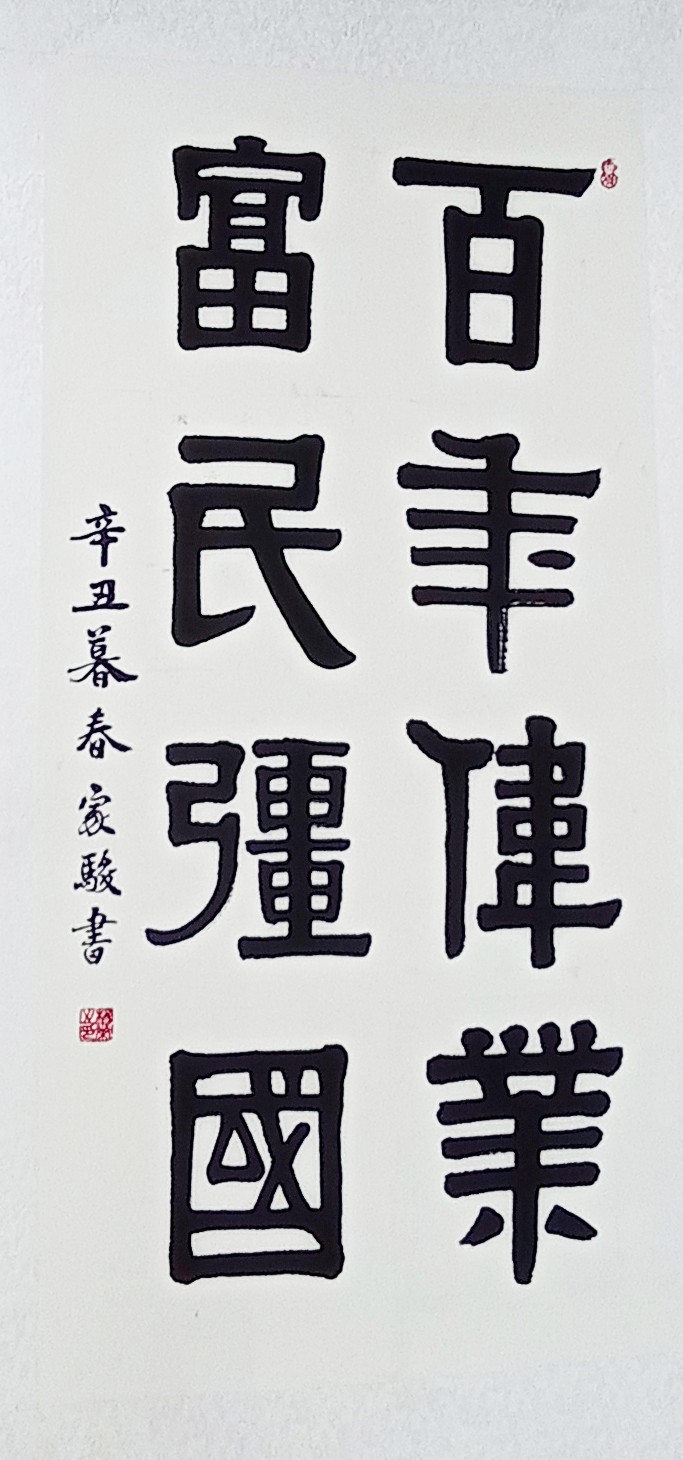 百年偉業
富民彊國
辛丑暮春家駿書